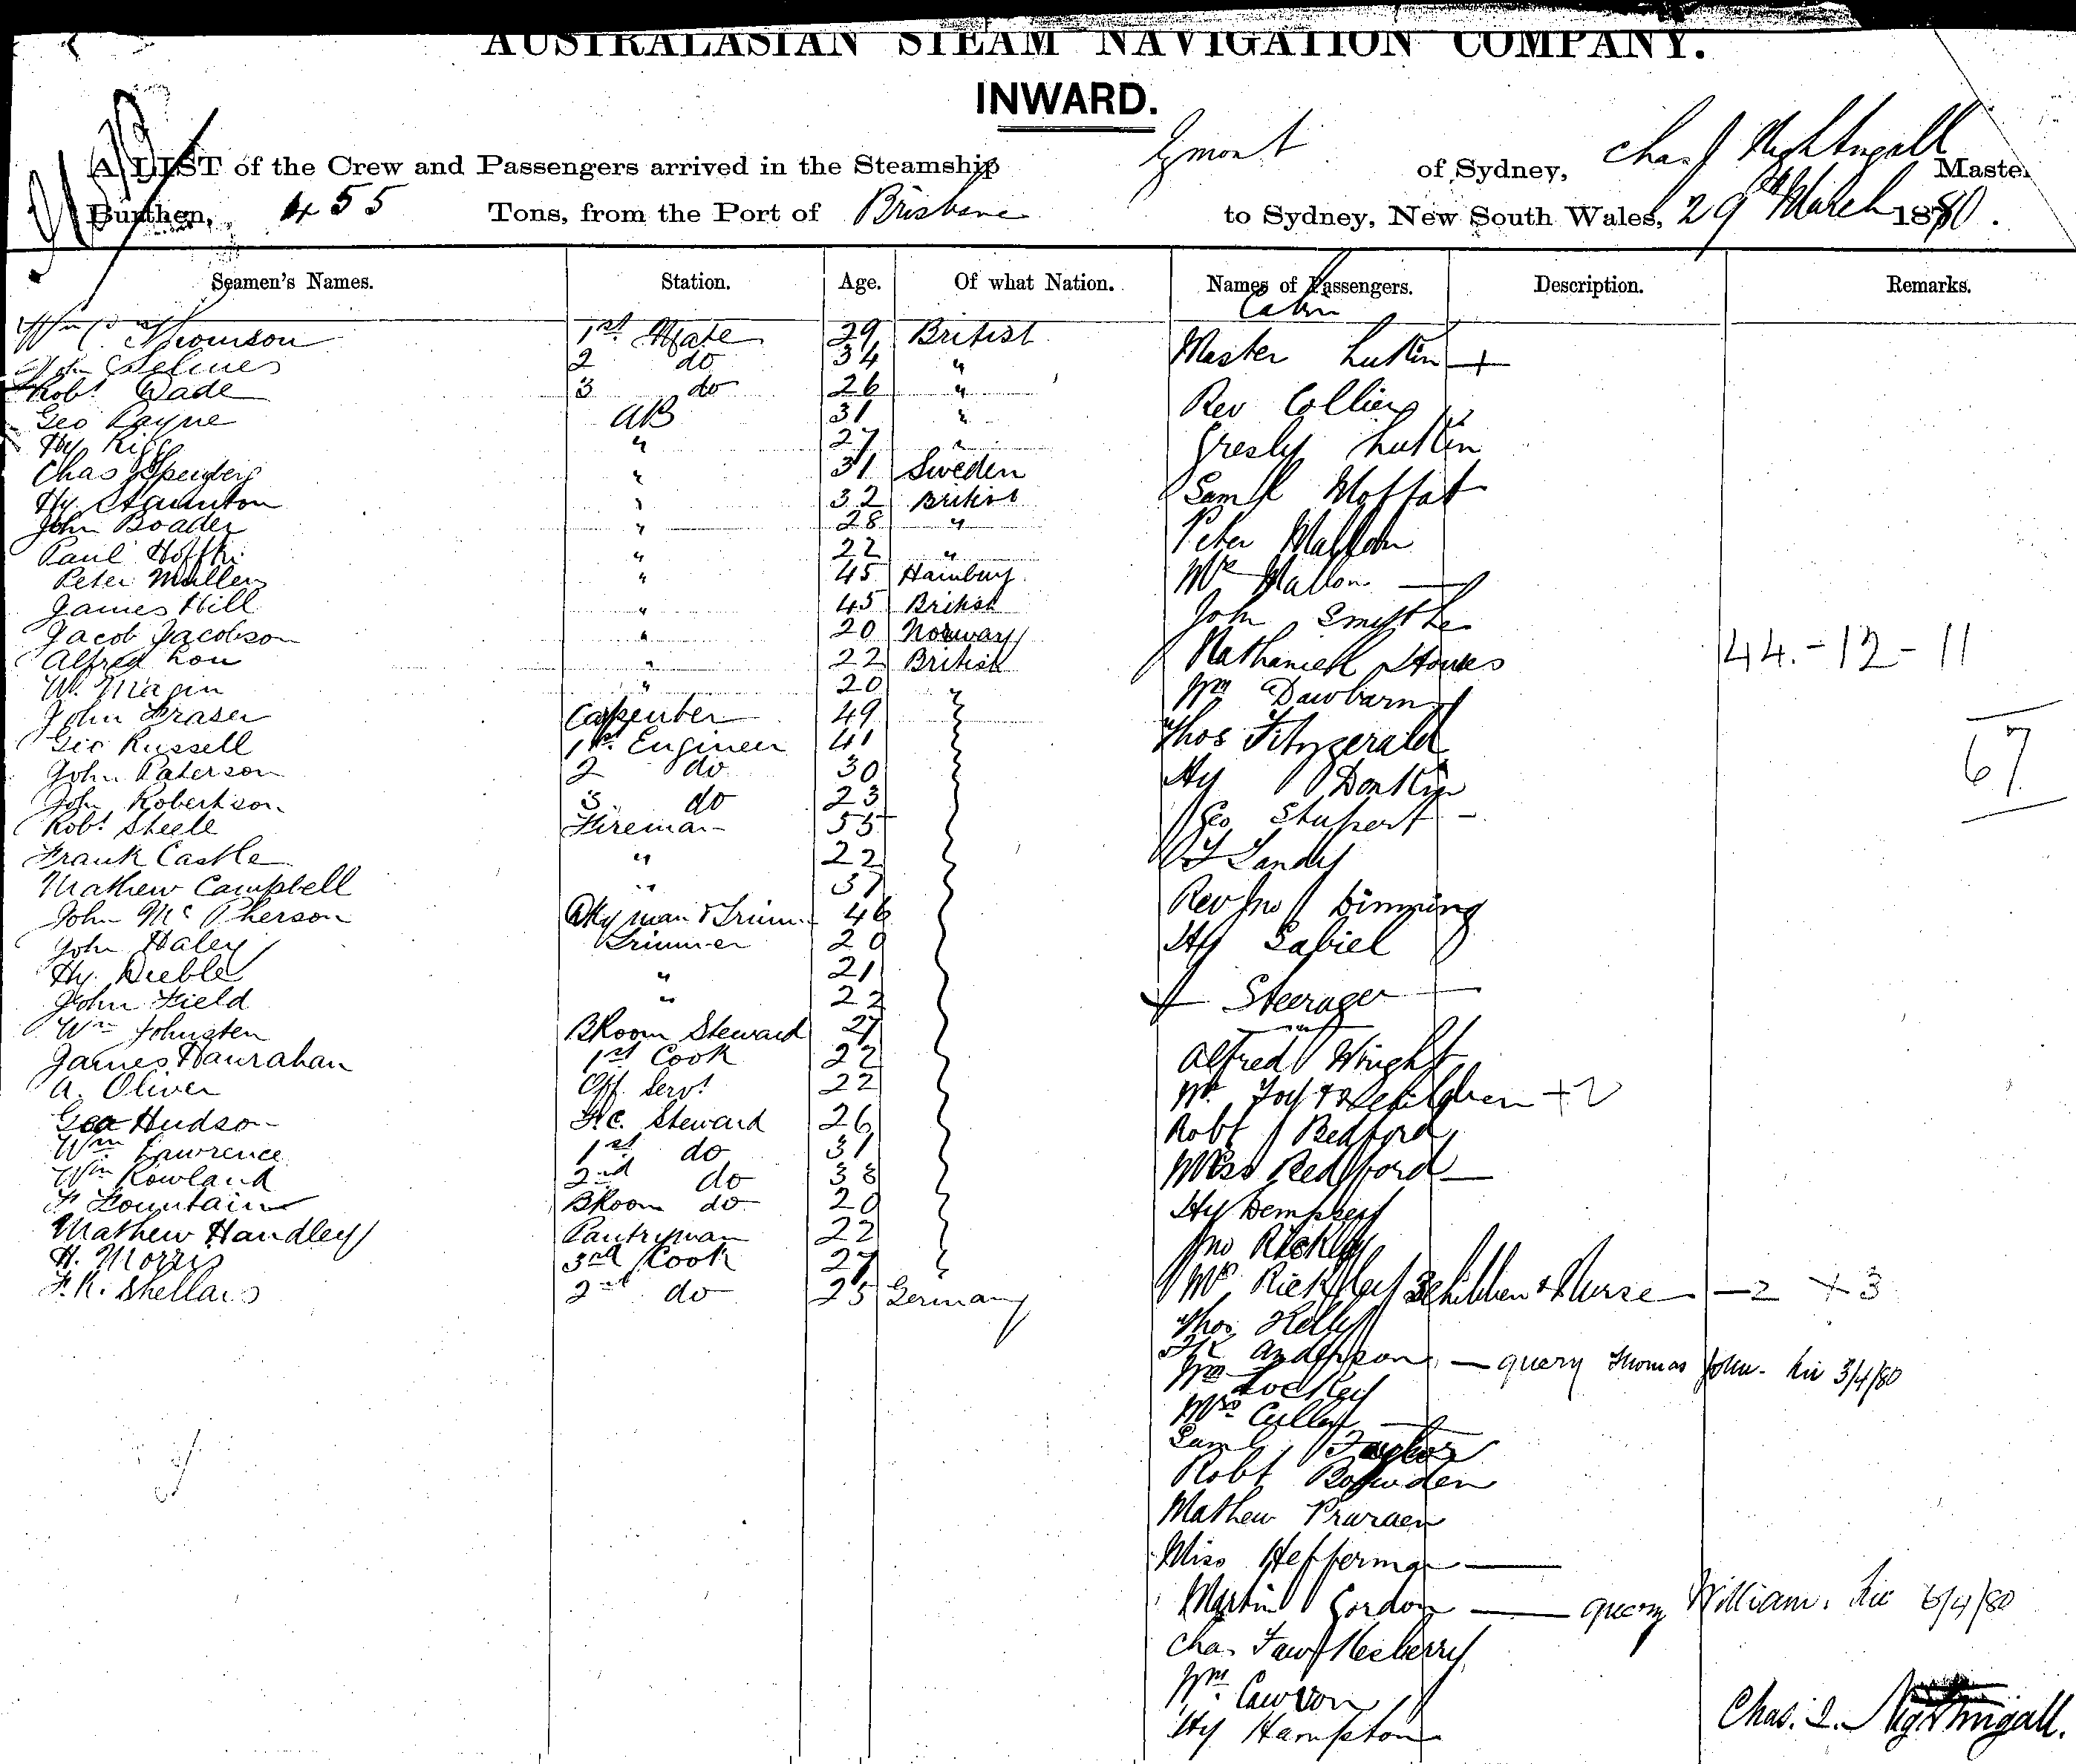 AUSTRALASIAN STEAM NAVIGATION COMPANY.
INWARD.
A LIST of the Crew and Passengers arrived in the Steamship Egmont of Sydney, Chas J Nightingall Master
Burthen, 455 Tons, from the Port of Brisbane to Sydney, New South Wales, 29th March 1880.
Seamen's Names. Station. Age. Of what Nation. Names of Passengers. Description. Remarks.
Cabin
Thomson 1st Mate 29 British
John Selmes 2 do 34 "
Robt Wade 3 do 26 "
Geo Payne AB 31 "
Hy " 27 "
Chas " 31 Sweden
Hy Staunton " 32 British
John Boader " 28 "
Paul Hoffki " 22 "
Peter Mullers " 45 Hamburg
James Hill " 45 British
Jacob Jacobson " 20 Norway
Alfred Lou " 22 British
W. Magin " 20 "
John Fraser Carpenter 49
Geo Russell 1st Engineer 41
John Paterson 2 do 30
John Robertson 3 do 23
Robt Steele Fireman 55
Frank Castle " 22
Mathew Campbell " 37
John McPherson Dky man & Trim 46
John Haley Trimmer 20
Hy. Dieble " 21
John Field " 22
Wm Johnsten BRoom Steward 27
James Hanrahan 1st Cook 22
A. Oliver Off Servt 22
Geo Hudson F.C. Steward 26
Wm Lawrence 1st do 31
Wm Rowland 2nd do 38
F Fountain BRoom do 20
Mathew Handley Pantryman 22
H. Morris 3rd Cook 27
F. K. Shellars 2nd do 25 Germany
Master Lutkin +
Rev Colliers
Gresly Lutkin
Saml Moffat
Peter Mallon
Mrs Mallon —
John Smythe
Nathaniell Stokes
Wm Dawbarn
Thos Fitzgerald
Hy Donkin
Geo Stupart -
J Landy
Rev Jno Dimming
Hy Gabiel
Steerage
Alfred Wright
Mr Joy & 2 children + 2
Robt Bedford
Miss Bedford —
Hy Dempsey
Jno Rickley
Mrs Rickley 3 children & Nurse — 2 + 3
Thos Kelly
Anderson — query Thomas John. 3/4/80
Wm Lockey
Mrs Culley —
Saml Taylor
Robt Bowden
Mathew
Miss Hefferman —
Martin Gordon — query William. 6/4/80
Chas Fawkesberry
Wm Cawson
Hy Hampton
44.-12-11
67
Chas. J. Nightingall.